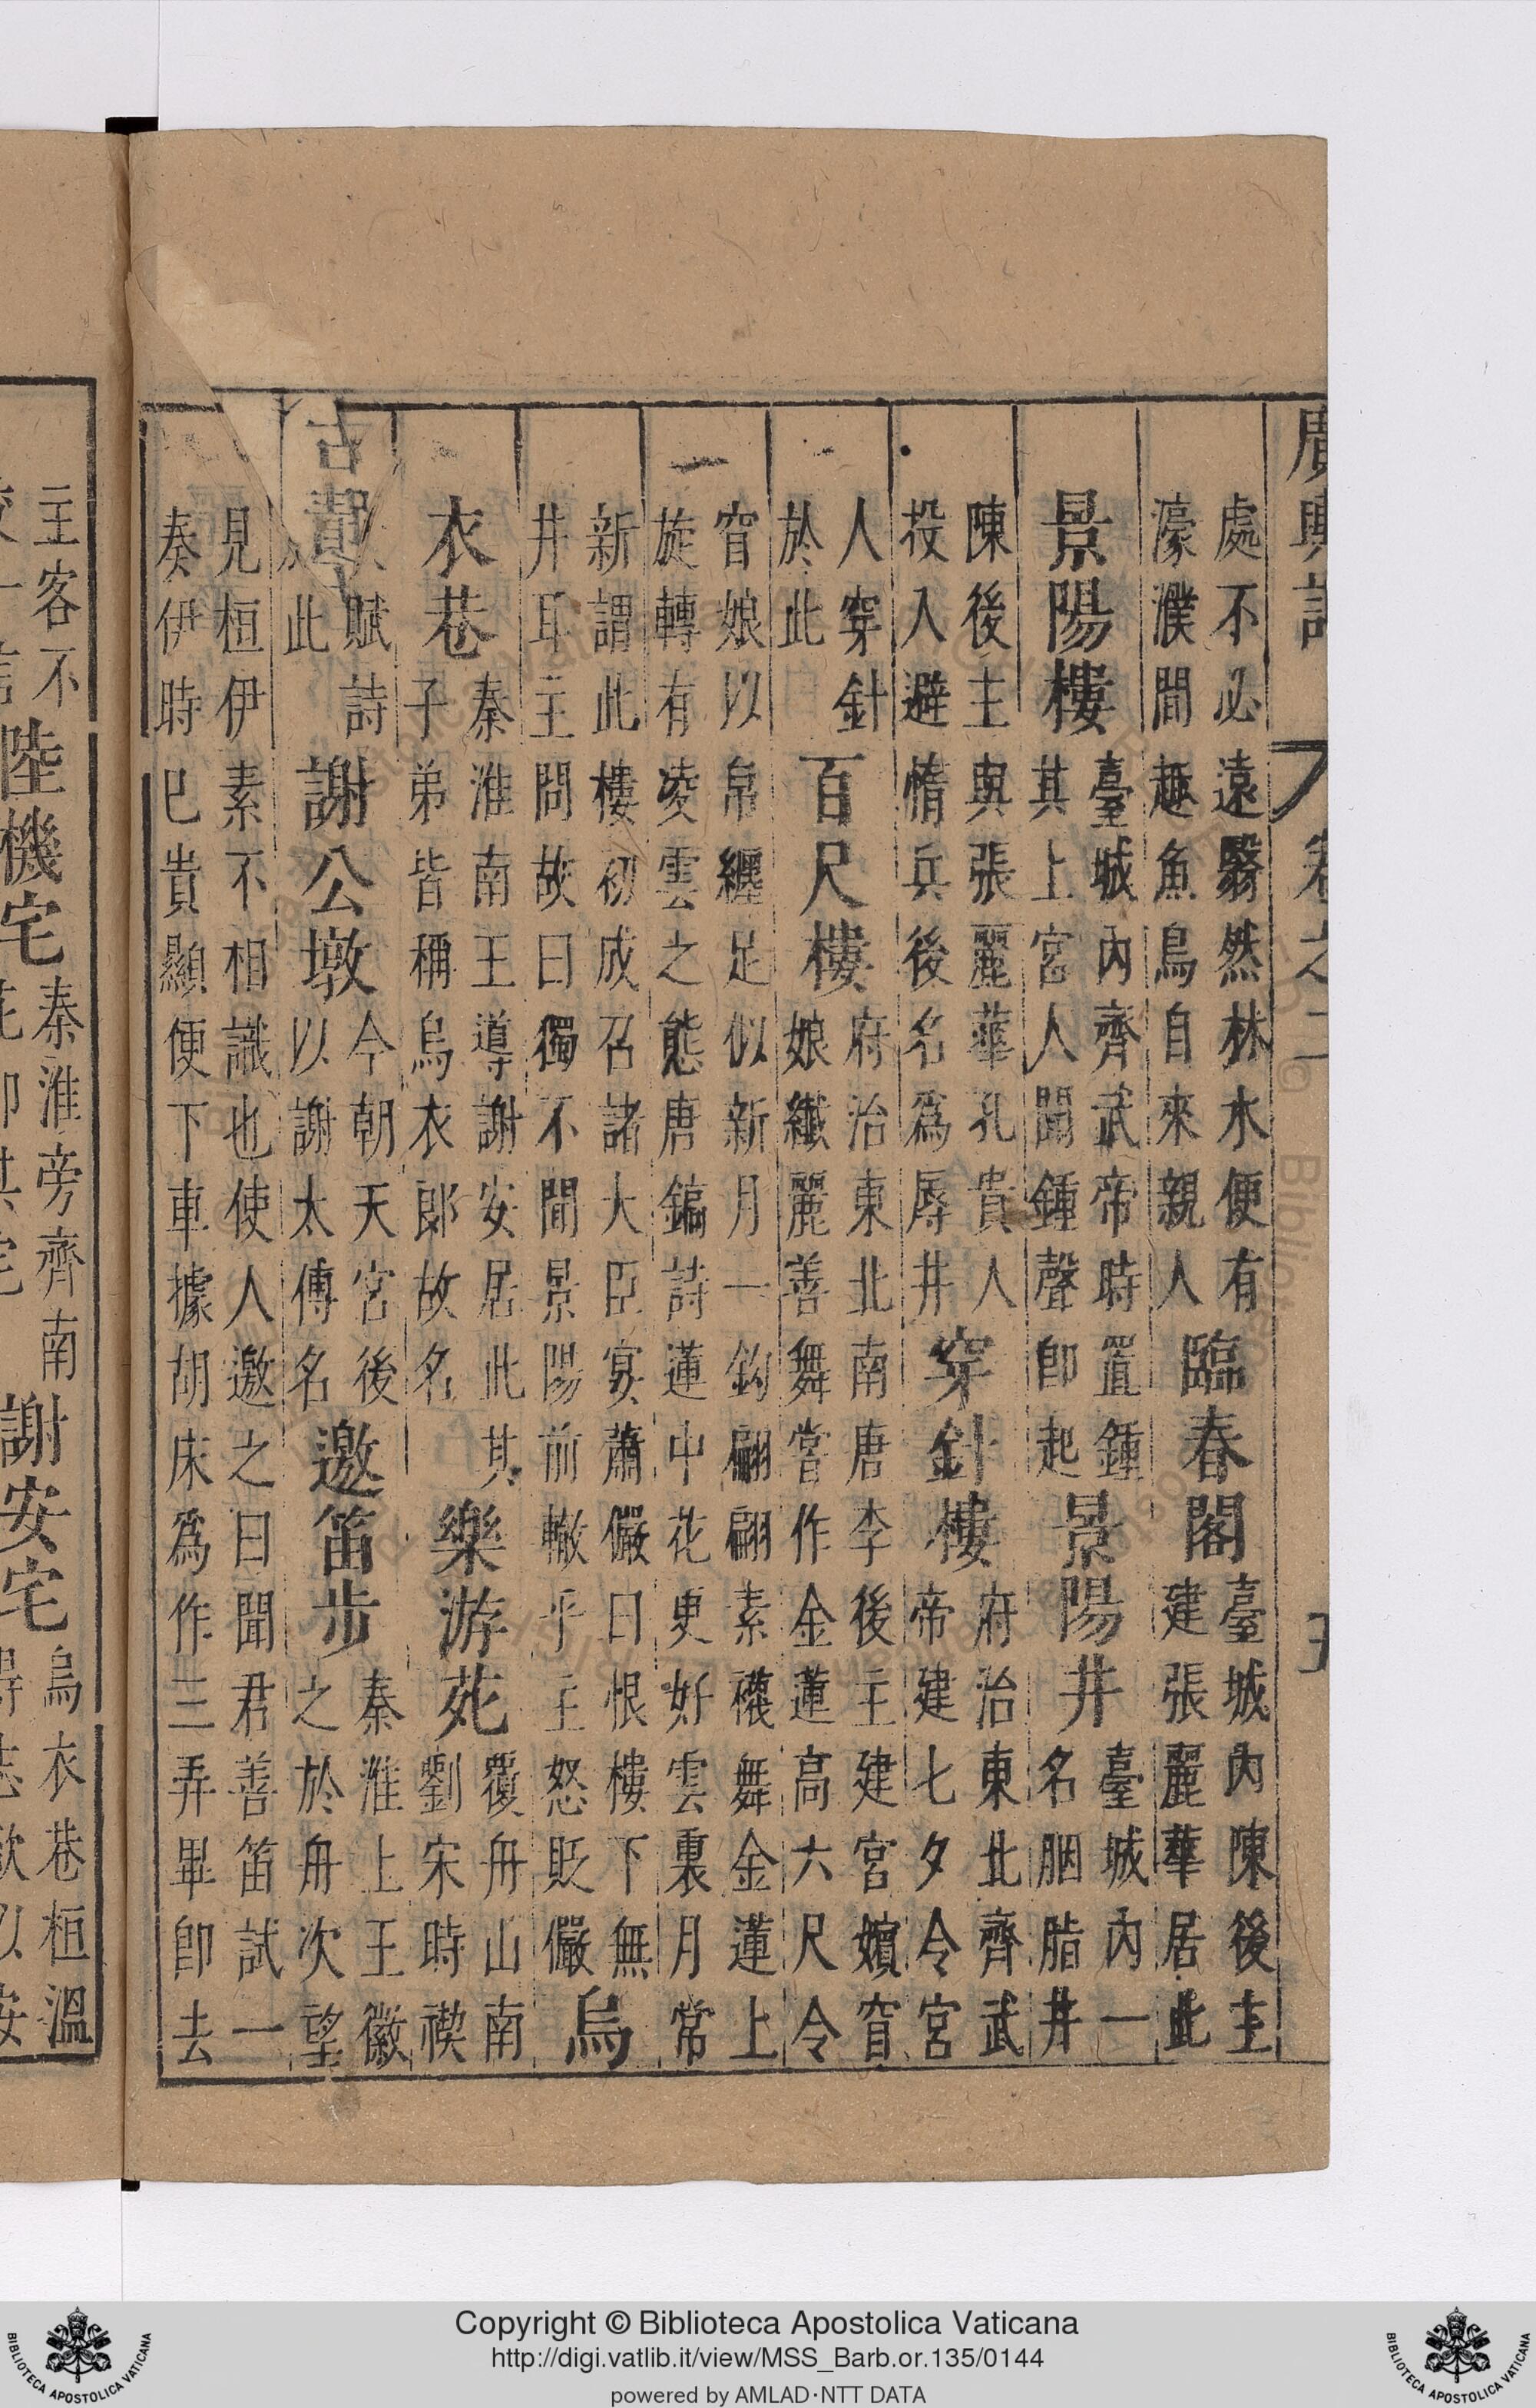 廣輿記 卷之二 五
處不必遠翳然林水便有
濠濮間趣魚鳥自來親人
臨春閣
臺城內陳後主
建張麗華居此
景陽樓
臺城內齊武帝時置鍾
其上宮人聞鍾聲卽起
景陽井
臺城內一
名胭脂井
陳後主與張麗華孔貴人
投入避惰兵後名爲辱井
穿針樓
府治東北齊武
帝建七夕令宮
人穿針
於此
百尺樓
府治東北南唐李後主建宮嬪窅
娘纖麗善舞嘗作金蓮高六尺令
窅娘以帛纏足似新月一鈎翩翩素襪舞金蓮上
旋轉有凌雲之態唐鎬詩蓮中花更好雲裏月常
新謂此樓初成召諸大臣宴蕭儼曰恨樓下無
井耳主問故曰獨不聞景陽前轍乎主怒貶儼
烏
衣巷
秦淮南王導謝安居此其
子弟皆稱烏衣郎故名
樂游苑
覆舟山南
劉宋時禊
賦詩
此
謝公墩
今朝天宮後
以謝太傅名
邀笛步
秦淮上王徽
之於舟次望
見桓伊素不相識也使人邀之曰聞君善笛試一
奏伊時已貴顯便下車據胡床爲作三弄畢卽去
主客不
陸機宅
秦淮旁齊南
謝安宅
烏衣巷桓溫
Copyright © Biblioteca Apostolica Vaticana
http://digi.vatlib.it/view/MSS_Barb.or.135/0144
powered by AMLAD·NTT DATA
BIBLIOTECA APOSTOLICA VATICANA
BIBLIOTECA APOSTOLICA VATICANA